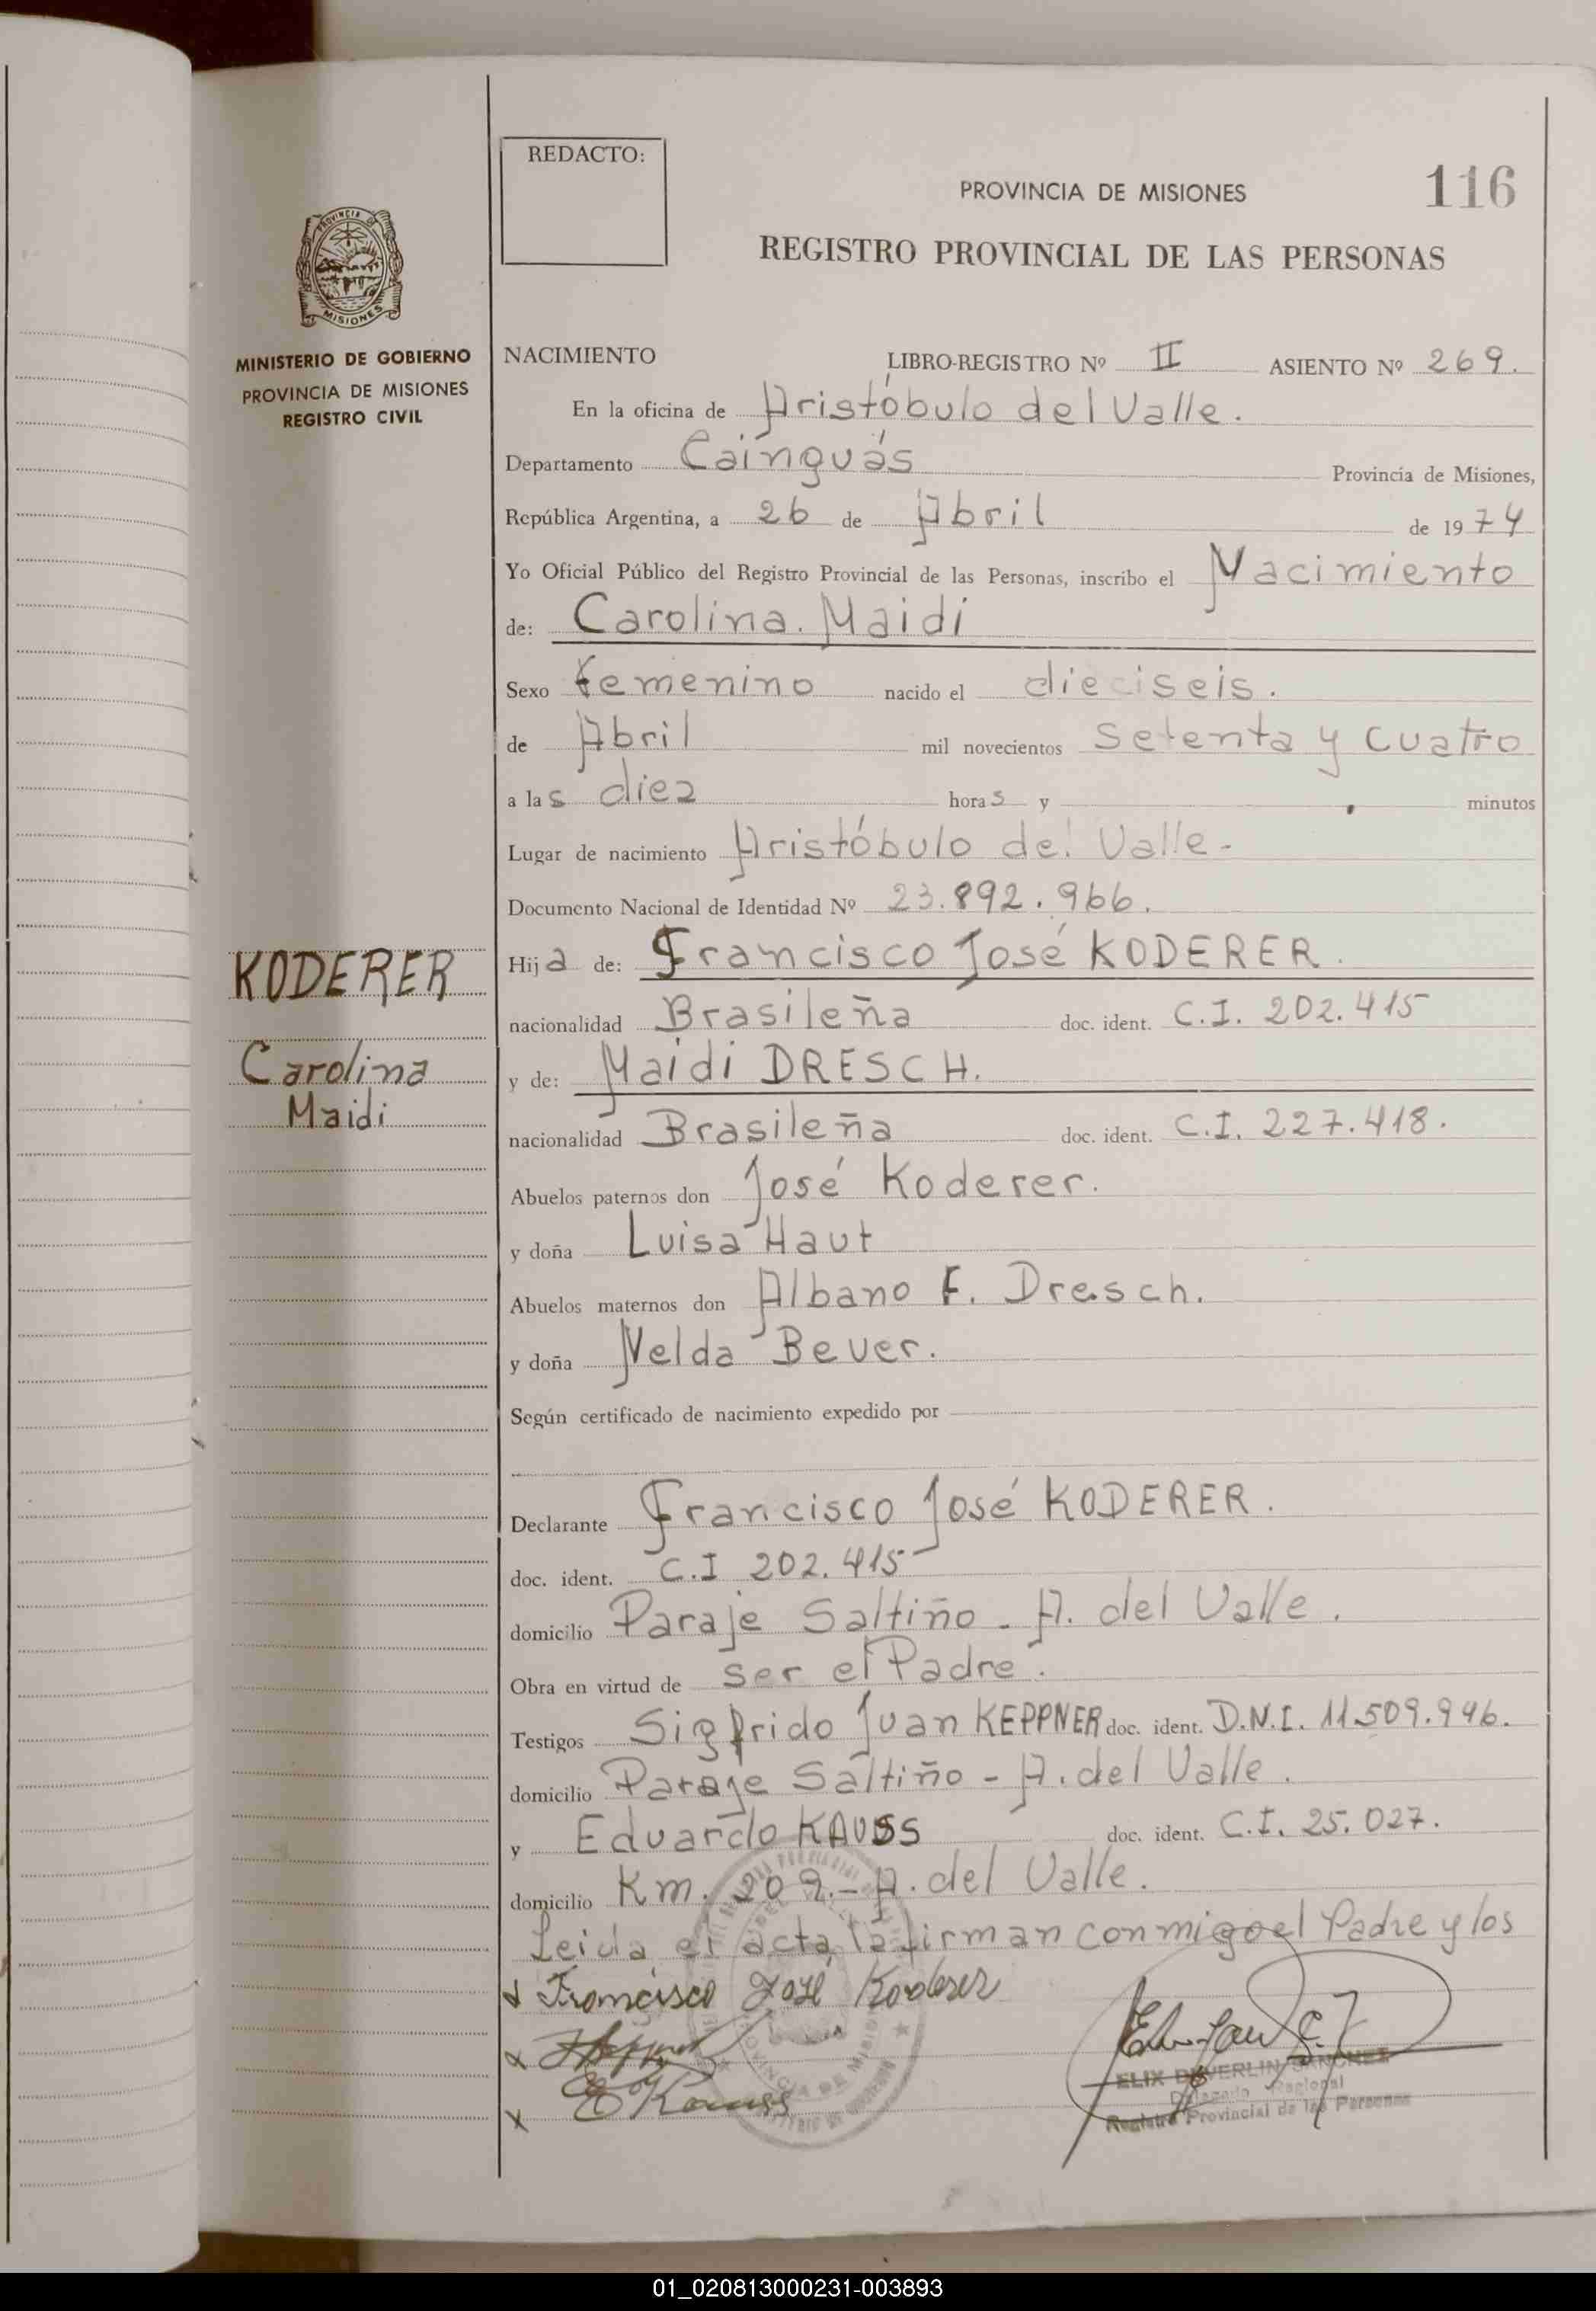 REDACTO:
PROVINCIA DE MISIONES
116
REGISTRO PROVINCIAL DE LAS PERSONAS
PROVINCIA DE
MISIONES
MINISTERIO DE GOBIERNO
PROVINCIA DE MISIONES
REGISTRO CIVIL
NACIMIENTO LIBRO-REGISTRO Nº II ASIENTO Nº 269.
En la oficina de Aristóbulo del Valle.
Departamento Cainguás Provincia de Misiones,
República Argentina, a 26 de Abril de 1974
Yo Oficial Público del Registro Provincial de las Personas, inscribo el Nacimiento
de: Carolina. Maidi
Sexo femenino nacido el dieciseis.
de Abril mil novecientos setenta y cuatro
a las diez horas y minutos
Lugar de nacimiento Aristóbulo del Valle-
Documento Nacional de Identidad Nº 23.892.966.
KODERER
Carolina
Maidi
Hija de: Francisco José KODERER.
nacionalidad Brasileña doc. ident. C.I. 202.415
y de: Maidi DRESCH.
nacionalidad Brasileña doc. ident. C.I. 227.418.
Abuelos paternos don José Koderer.
y doña Luisa Haut
Abuelos maternos don Albano F. Dresch.
y doña Nelda Beuer.
Según certificado de nacimiento expedido por
Declarante Francisco José KODERER.
doc. ident. C.I 202.415
domicilio Paraje Saltiño - A. del Valle.
Obra en virtud de ser el Padre.
Testigos Sigfrido Juan KEPPNER doc. ident. D.N.I. 11.509.946.
domicilio Paraje Saltiño - A. del Valle.
y Eduardo KAUSS doc. ident. C.I. 25.027.
domicilio Km. 209.- A. del Valle.
Leida el acta la firman conmigo el Padre y los
x Francisco José Koderer
x
x E Kauss
ELIX SANCHEZ
Delegado Regional
Registro Provincial de las Personas
01_020813000231-003893